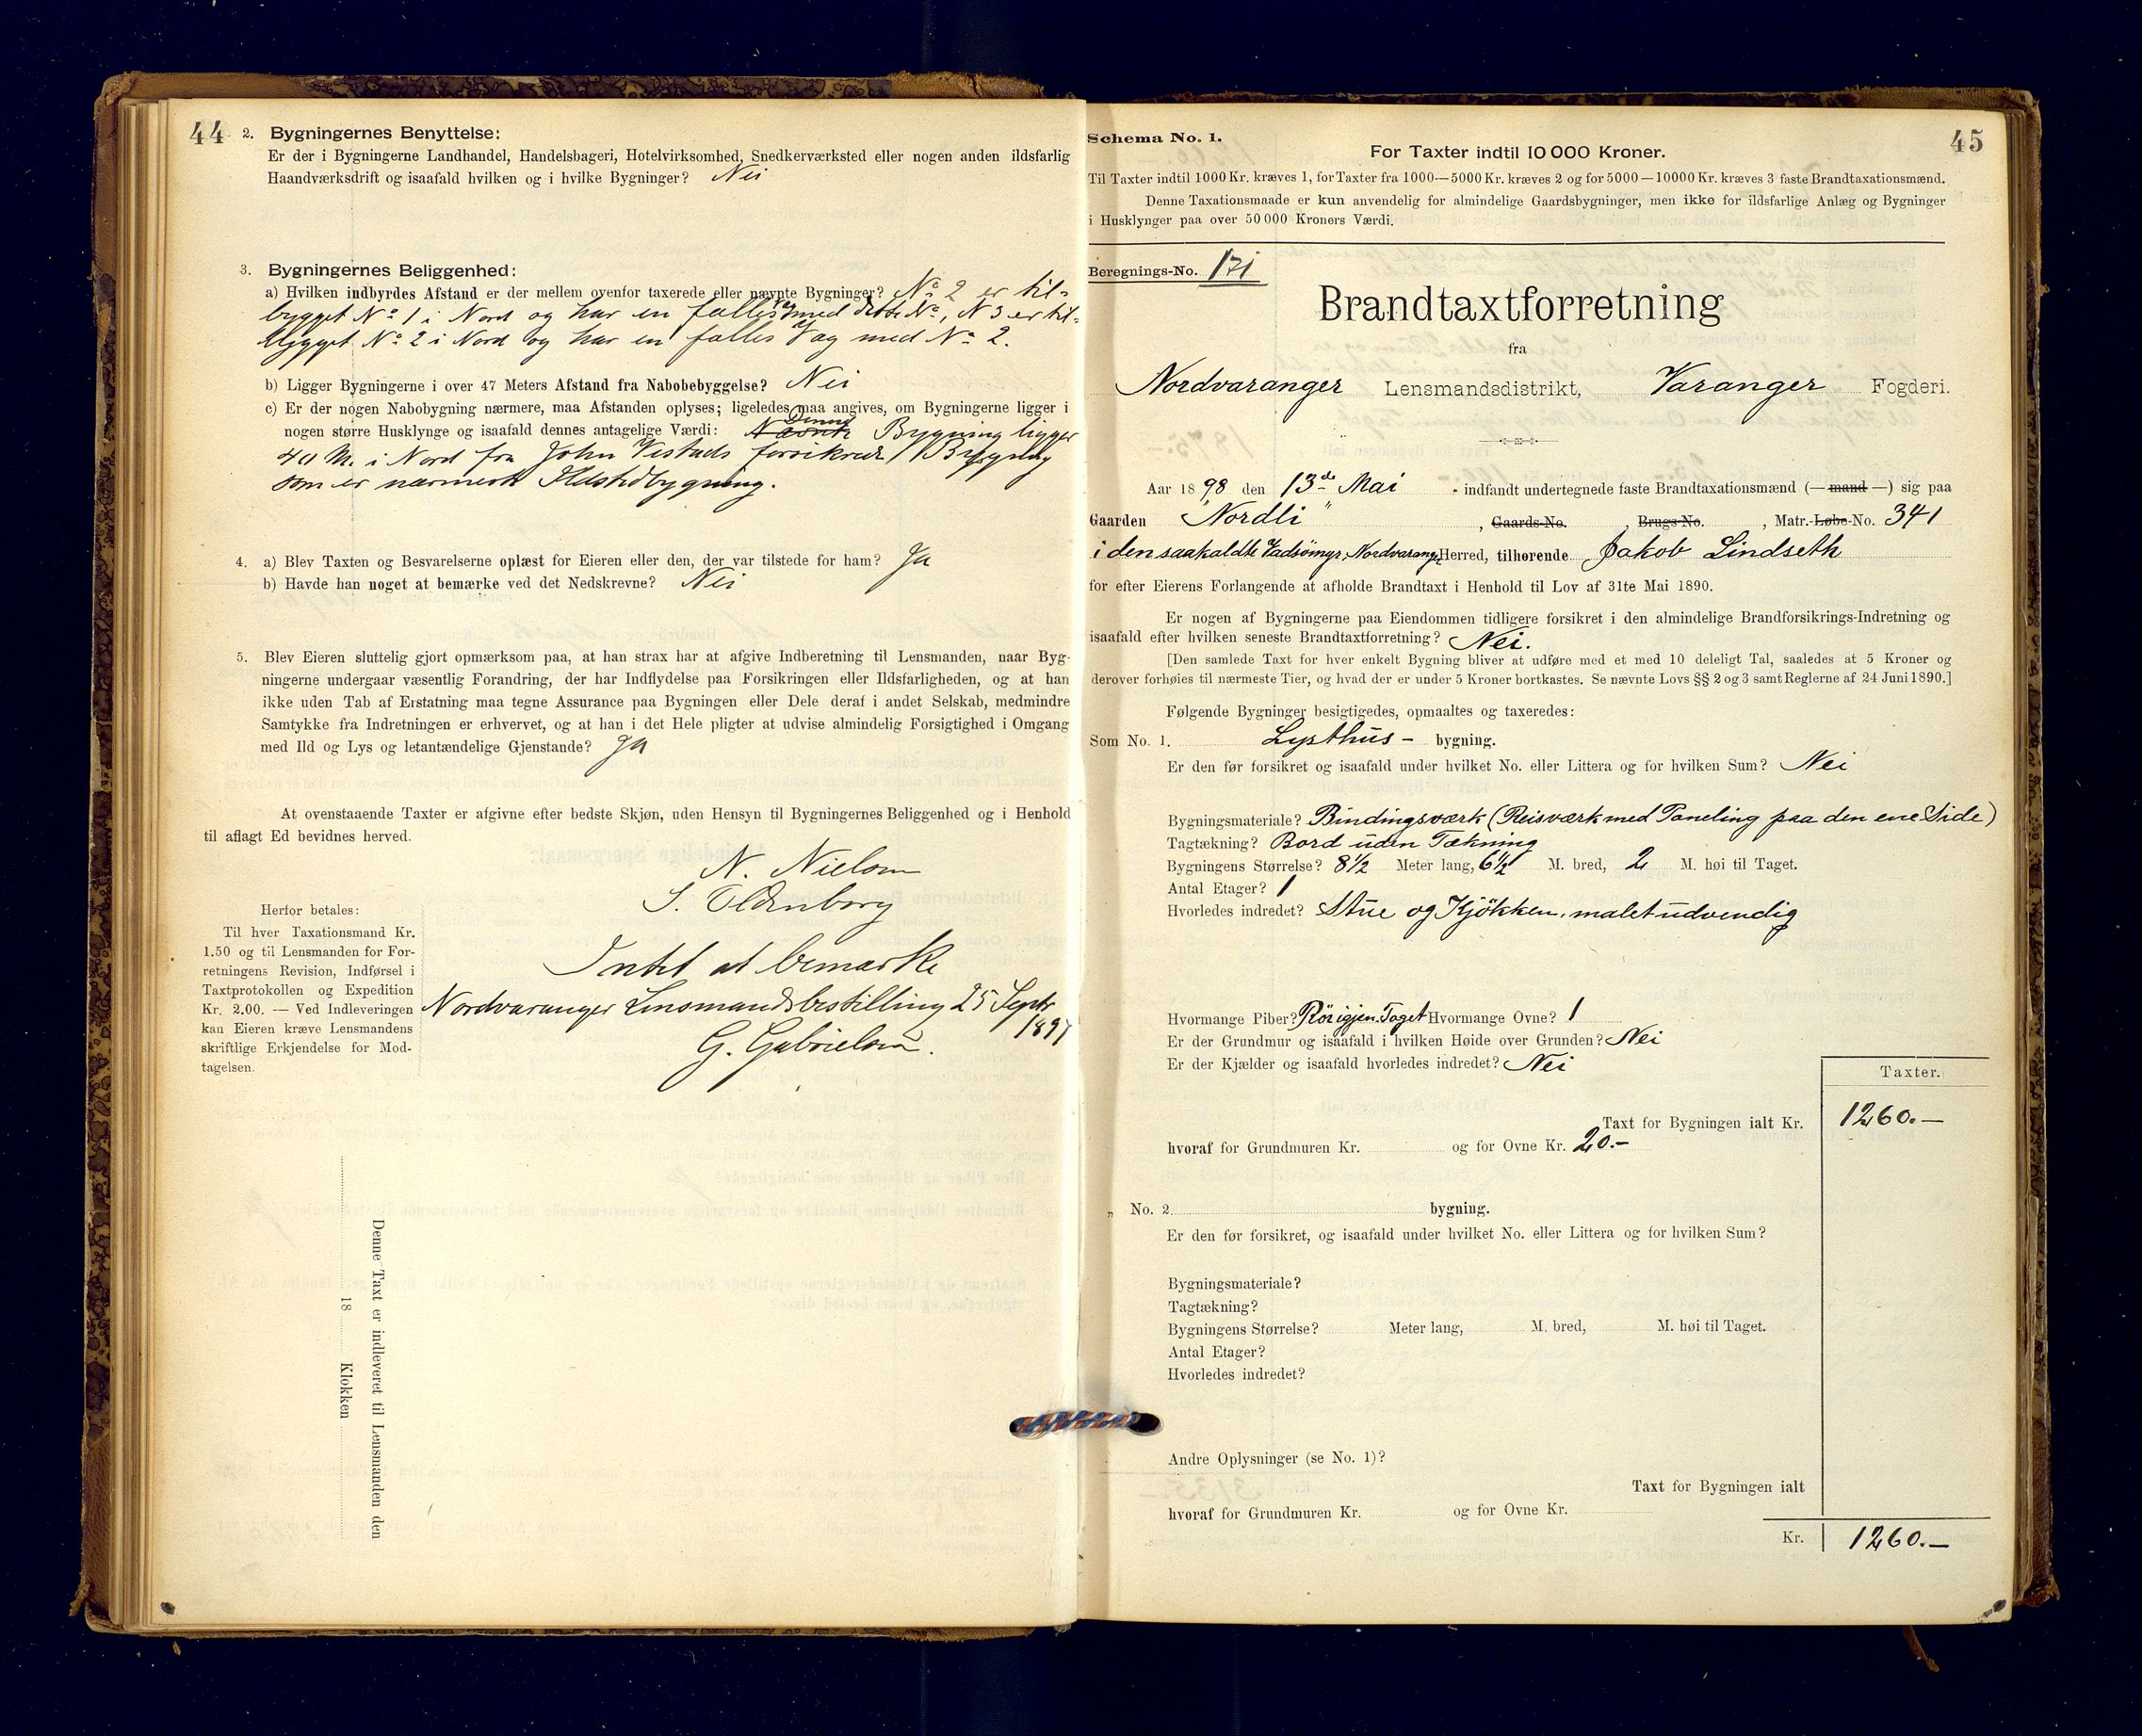 44
2. Bygningernes Benyttelse:
Er der i Bygningerne Landhandel, Handelsbageri, Hotelvirksomhed, Snedkerværksted eller nogen anden ildsfarlig
Haandværksdrift og isaafald hvilken og i hvilke Bygninger? Nei
3. Bygningernes Beliggenhed:
a) Hvilken indbyrdes Afstand er der mellem ovenfor taxerede eller nævnte Bygninger? No 2 er til-
bygget No 1 i Nord og har en fælles Væg med dette No, N 3 er til-
bygget No 2 i Nord og har en fælles Væg med No 2.
b) Ligger Bygningerne i over 47 Meters Afstand fra Nabobebyggelse? Nei
c) Er der nogen Nabobygning nærmere, maa Afstanden oplyses; ligeledes maa angives, om Bygningerne ligger i
nogen større Husklynge og isaafald dennes antagelige Værdi: Denne Bygning ligger
40 M. i Nord fra John Vestads forsikrede Bygning
som er nærmeste Ildstedbygning.
4. a) Blev Taxten og Besvarelserne oplæst for Eieren eller den, der var tilstede for ham? Ja
b) Havde han noget at bemærke ved det Nedskrevne? Nei
5. Blev Eieren sluttelig gjort opmærksom paa, at han strax har at afgive Indberetning til Lensmanden, naar Byg-
ningerne undergaar væsentlig Forandring, der har Indflydelse paa Forsikringen eller Ildsfarligheden, og at han
ikke uden Tab af Erstatning maa tegne Assurance paa Bygningen eller Dele deraf i andet Selskab, medmindre
Samtykke fra Indretningen er erhvervet, og at han i det Hele pligter at udvise almindelig Forsigtighed i Omgang
med Ild og Lys og letantændelige Gjenstande? Ja
At ovenstaaende Taxter er afgivne efter bedste Skjøn, uden Hensyn til Bygningernes Beliggenhed og i Henhold
til aflagt Ed bevidnes herved.
N. Nielsen
S. Oldenborg
Herfor betales:
Til hver Taxationsmand Kr.
1.50 og til Lensmanden for For-
retningens Revision, Indførsel i
Taxtprotokollen og Expedition
Kr. 2.00. — Ved Indleveringen
kan Eieren kræve Lensmandens
skriftlige Erkjendelse for Mod-
tagelsen.
Intet at bemærke
Nordvaranger Lensmandsbestilling 25 Septr
1897
G. Gabrielsen.
Denne Taxt er indleveret til Lensmanden den
18 Klokken
Schema No. 1.
45
For Taxter indtil 10 000 Kroner.
Til Taxter indtil 1000 Kr. kræves 1, for Taxter fra 1000—5000 Kr. kræves 2 og for 5000—10000 Kr. kræves 3 faste Brandtaxationsmænd.
Denne Taxationsmaade er kun anvendelig for almindelige Gaardsbygninger, men ikke for ildsfarlige Anlæg og Bygninger
i Husklynger paa over 50 000 Kroners Værdi.
Beregnings-No. 171
Brandtaxtforretning
fra
Nordvaranger Lensmandsdistrikt, Varanger Fogderi.
Aar 1898 den 13de Mai - indfandt undertegnede faste Brandtaxationsmænd (— mand —) sig paa
Gaarden "Nordli" , Gaards-No. , Brugs-No. , Matr.-Løbe-No. 341
i den saakaldte Vadsömyr, Nordvaranger Herred, tilhørende Jakob Lindseth
for efter Eierens Forlangende at afholde Brandtaxt i Henhold til Lov af 31te Mai 1890.
Er nogen af Bygningerne paa Eiendommen tidligere forsikret i den almindelige Brandforsikrings-Indretning og
isaafald efter hvilken seneste Brandtaxtforretning? Nei.
[Den samlede Taxt for hver enkelt Bygning bliver at udføre med et med 10 deleligt Tal, saaledes at 5 Kroner og
derover forhøies til nærmeste Tier, og hvad der er under 5 Kroner bortkastes. Se nævnte Lovs §§ 2 og 3 samt Reglerne af 24 Juni 1890.]
Følgende Bygninger besigtigedes, opmaaltes og taxeredes:
Som No. 1. Lysthus- bygning.
Er den før forsikret og isaafald under hvilket No. eller Littera og for hvilken Sum? Nei
Bygningsmateriale? Bindingsværk (Reisværk med Paneling paa den ene Side)
Tagtækning? Bord uden Tækning
Bygningens Størrelse? 8½ Meter lang, 6½ M. bred, 2 M. høi til Taget.
Antal Etager? 1
Hvorledes indredet? Stue og Kjökken, malet udvendig
Hvormange Piber? Rör igjen. Taget Hvormange Ovne? 1
Er der Grundmur og isaafald i hvilken Høide over Grunden? Nei
Er der Kjælder og isaafald hvorledes indredet? Nei
Taxter.
Taxt for Bygningen ialt Kr. 1260.—
hvoraf for Grundmuren Kr. og for Ovne Kr. 20.—
„ No. 2 bygning.
Er den før forsikret, og isaafald under hvilket No. eller Littera og for hvilken Sum?
Bygningsmateriale?
Tagtækning?
Bygningens Størrelse? Meter lang, M. bred, M. høi til Taget.
Antal Etager?
Hvorledes indredet?
Andre Oplysninger (se No. 1)?
Taxt for Bygningen ialt
hvoraf for Grundmuren Kr. og for Ovne Kr.
Kr. 1260.—